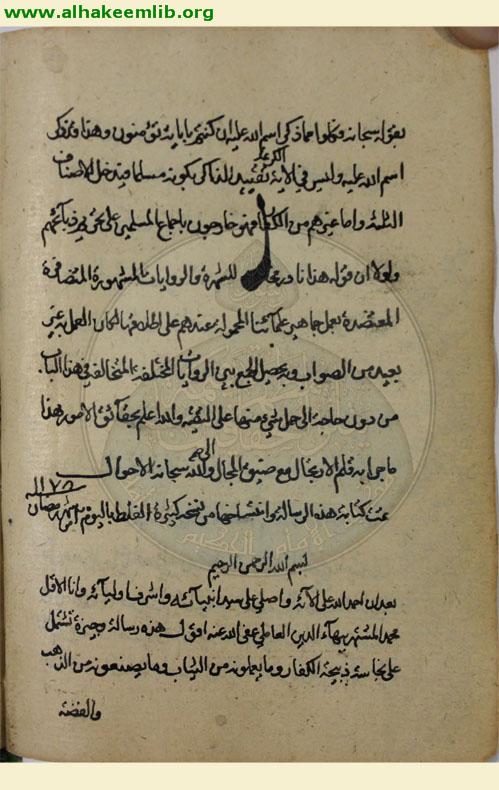 www.alhakeemlib.org
بقوله سبحانه وكلوا مما ذكر اسم الله عليه ان كنتم باياته مؤمنون وهذا مما ذكر
اسم الله عليه وليس في الاية الكريمة تقييد الذاكر بكونه مسلما فيدخل الاصناف
الثلثة واما غيرهم من الكفار فهو خارجون باجماع المسلمين على تحريم ذبائحهم
ولولا ان قوله هذا نادر مخالف للشهرة والروايات المشهورة المتضافرة
المعتضدة بعمل جماهير علمائنا المحمولة عندهم على اطلاقها لكان العمل به غير
بعيد من الصواب وبه يحصل الجمع بين الروايات المختلفة المتخالفة في هذا الباب
من دون حاجة الى حمل شيء منها على التقية والله اعلم بحقائق الامور هذا
ما جرى به قلم الارتجال مع ضيق المجال والى الله سبحانه الاحوال
تمت كتابة هذه الرسالة وانتسختها من نسخة كثيرة الغلط باليوم شهر رمضان ١١٧٥
بسم الله الرحمن الرحيم
بعد ان احمد الله على الآئه واصلي على سيد انبيائه واشرف اوليائه وانا الاقل
محمد المشتهر ببهاء الدين العاملي عفى الله عنه اقول هذه رسالة وجيزة تشتمل
على نجاسة ذبيحة الكفار وما يعملونه من الثياب وما يصنعونه من الذهب
والفضة